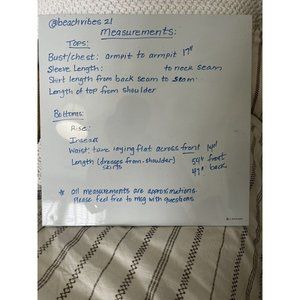 @beachvibes 21
Measurements:
Tops:
Bust/chest: armpit to armpit 17"
Sleeve Length: to neck seam
Shirt length from back seam to seam
Length of top from shoulder
Bottoms:
Rise:
Inseam
Waist tape laying flat across front 14"
Length (dresses from shoulder) 54" front
skirts 47" back
* all measurements are approximations.
Please feel free to msg with questions